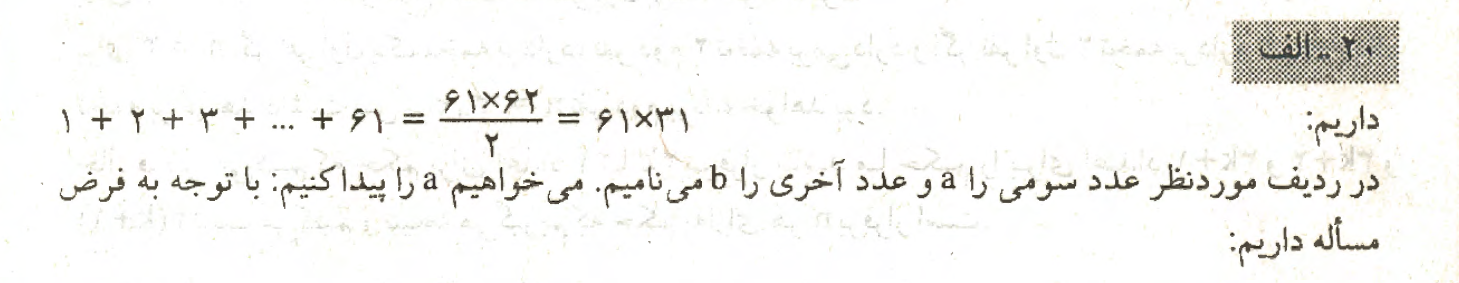 ۲۰ - الف
داریم: ۱ + ۲ + ۳ + ... + ۶۱ = \frac{۶۱×۶۲}{۲} = ۶۱×۳۱
در ردیف موردنظر عدد سومی را a و عدد آخری را b می‌نامیم. می‌خواهیم a را پیدا کنیم: با توجه به فرض
مسأله داریم: